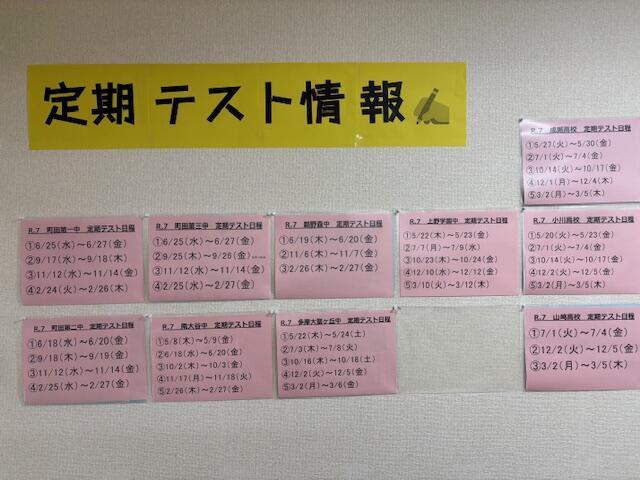 定期テスト情報
R.7 成瀬高校 定期テスト日程
①5/27(火)～5/30(金)
②7/1(火)～7/4(金)
③10/14(火)～10/17(金)
④12/1(月)～12/4(木)
⑤3/2(月)～3/5(木)
R.7 町田第一中 定期テスト日程
①6/25(水)～6/27(金)
②9/17(水)～9/18(木)
③11/12(水)～11/14(金)
④2/24(火)～2/26(木)
R.7 町田第三中 定期テスト日程
①6/25(水)～6/27(金)
②9/25(木)～9/26(金)
③11/12(水)～11/14(金)
④2/25(水)～2/27(金)
R.7 鶴野森中 定期テスト日程
①6/19(木)～6/20(金)
②11/6(木)～11/7(金)
③2/26(木)～2/27(金)
R.7 上野学園中 定期テスト日程
①5/22(木)～5/23(金)
②7/7(月)～7/9(水)
③10/23(木)～10/24(金)
④12/10(水)～12/12(金)
⑤3/10(火)～3/12(木)
R.7 小川高校 定期テスト日程
①5/20(火)～5/23(金)
②7/1(火)～7/4(金)
③10/14(火)～10/17(金)
④12/2(火)～12/5(金)
⑤3/2(月)～3/5(木)
R.7 町田第二中 定期テスト日程
①6/18(水)～6/20(金)
②9/18(木)～9/19(金)
③11/12(水)～11/14(金)
④2/25(水)～2/27(金)
R.7 南大谷中 定期テスト日程
①5/8(木)～5/9(金)
②6/18(水)～6/20(金)
③10/2(木)～10/3(金)
④11/17(月)～11/18(火)
⑤2/26(木)～2/27(金)
R.7 多摩大聖ヶ丘中 定期テスト日程
①5/22(木)～5/24(土)
②7/3(木)～7/8(火)
③10/16(木)～10/18(土)
④12/2(火)～12/5(金)
⑤3/2(月)～3/6(金)
R.7 山崎高校 定期テスト日程
①7/1(火)～7/4(金)
②12/2(火)～12/5(金)
③3/2(月)～3/5(木)